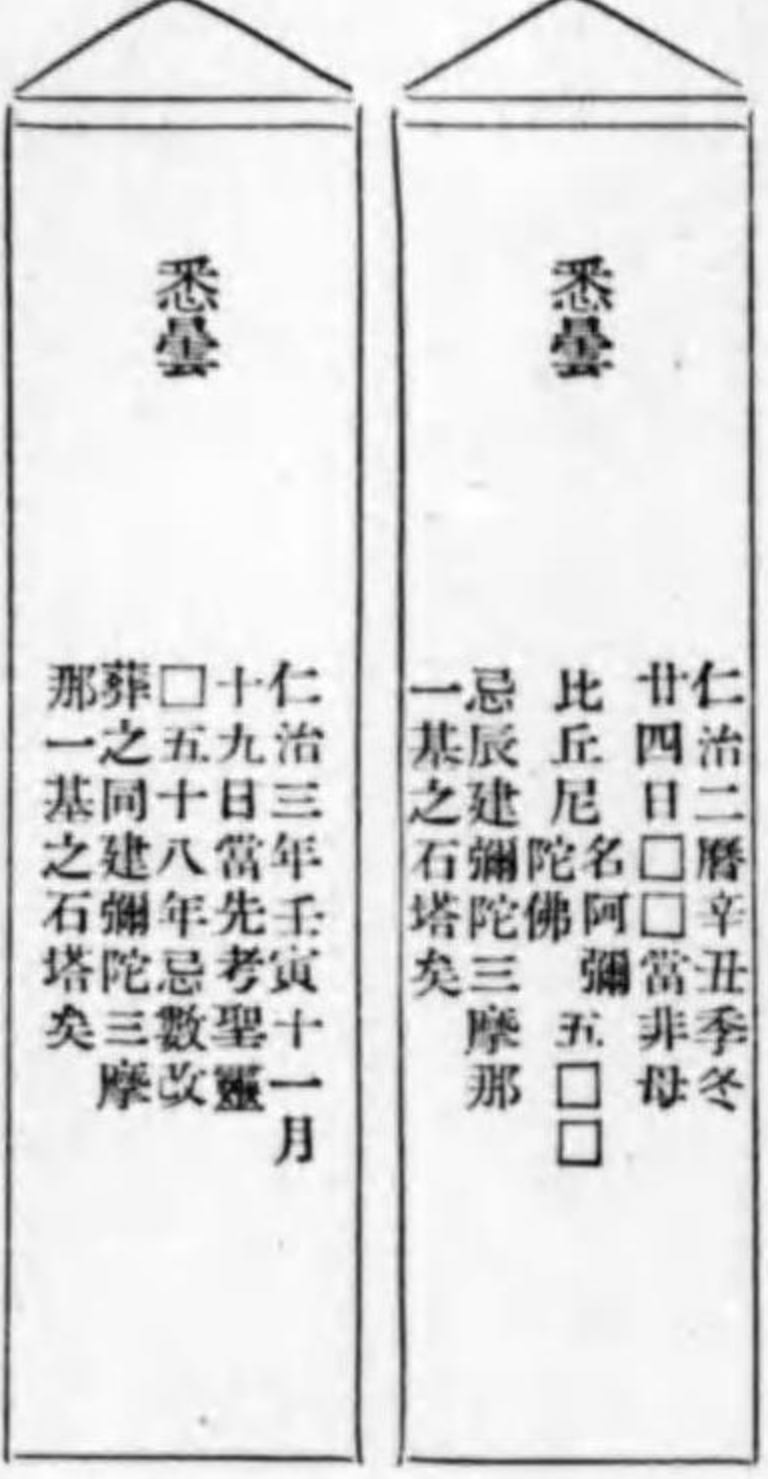 悉曇
仁治二曆辛丑季冬
廿四日□□當非母
比丘尼名阿彌陀佛五□□
忌辰建彌陀三摩那
一基之石塔矣
悉曇
仁治三年壬寅十一月
十九日當先考聖靈
□五十八年忌數改
葬之同建彌陀三摩
那一基之石塔矣